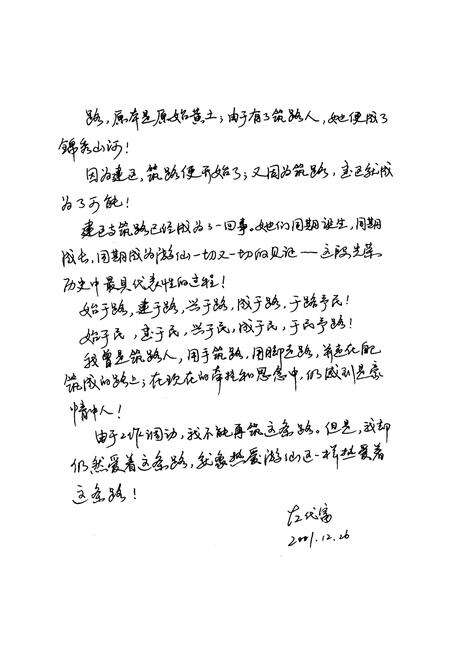 路，原本是原始黄土；由于有了筑路人，她便成了
锦秀山河！
因为建区，筑路便开始了；又因为筑路，建区就成
为了可能！
建区与筑路已经成为了一回事。她们同期诞生，同期
成长，同期成为游仙一切又一切的见证——这段光荣
历史中最具代表性的过程！
始于路，建于路，兴于路，成于路，于路予民！
始于民，基于民，兴于民，成于民，于民予路！
我曾是筑路人，用手筑路，用脚走路，并走在自己
筑成的路上；在现在的牵挂和思念中，仍感到是个
情中人！
由于工作调动，我不能再筑这条路。但是，我却
仍然爱着这条路，就象热爱游仙区一样热爱着
这条路！
左代富
2001.12.26